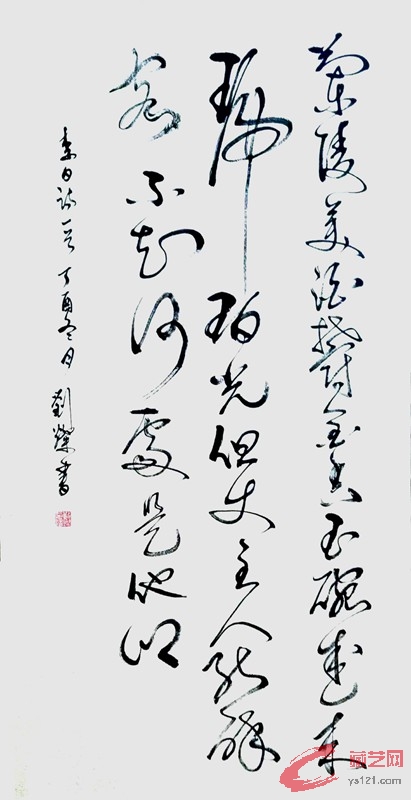 蘭陵美酒鬱金香玉碗盛来
琥珀光但使主人能醉
客不知何處是他鄉
李白詩一首 丁酉冬月 劉 書
藏艺网
ys121.com